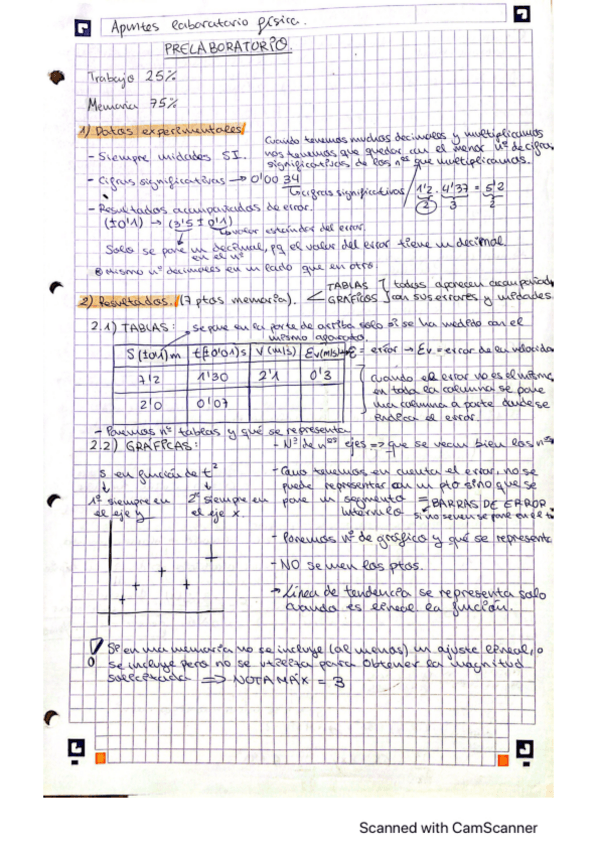 Apuntes laboratorio física.
PRELABORATORIO.
Trabajo 25%
Memoria 75%
1) Datos experimentales
- Siempre unidades SI.
Cuando tenemos muchos decimales y multiplicamos
nos tenemos que quedar con el menor nº de cifras
significativas de los nºs que multiplicamos.
- Cifras significativas → 0'00 34
↳ cifras significativas
1'2 . 4'37 = 5'2
2 3 2
- Resultados acompañados de error.
(±0'1) → (3'5 ± 0'1)
↳ valor estándar del error.
Solo se pone un decimal, pq el valor del error tiene un decimal.
en el nº
mismo nº decimales en un lado que en otro.
2) Resultados. (7 ptos memoria).
TABLAS
GRÁFICOS
todas aparecen acompañadas
con sus errores y unidades.
2.1) TABLAS:
se pone en la parte de arriba solo si se ha medido con el
mismo aparato.
S (±0'1) m t(±0'01) s V (m/s) Ev(m/s)
7'2 1'30 2'1 0'3
2'0 0'07
E = error → Ev = error de la velocidad
cuando el error no es el mismo
en toda la columna se pone
una columna a parte donde se
indica el error.
- Ponemos nº tablas y qué se representa
2.2) GRÁFICAS:
- Nº de nºs ejes => que se vean bien los nºs
s en función de t²
↓ ↓
1º siempre en el eje y
2º siempre en el eje x.
- Como tenemos en cuenta el error, no se
puede representar con un pto sino que se
pone un segmento
intervalo
= BARRAS DE ERROR
si no se ven se pone en el
- Ponemos nº de gráfico y qué se representa
- NO se unen los ptos.
→ Línea de tendencia se representa solo
cuando es lineal la función.
Si en una memoria no se incluye (al menos) un ajuste lineal, o
se incluye pero no se utiliza para obtener la magnitud
solicitada => NOTA MÁX = 3
Scanned with CamScanner